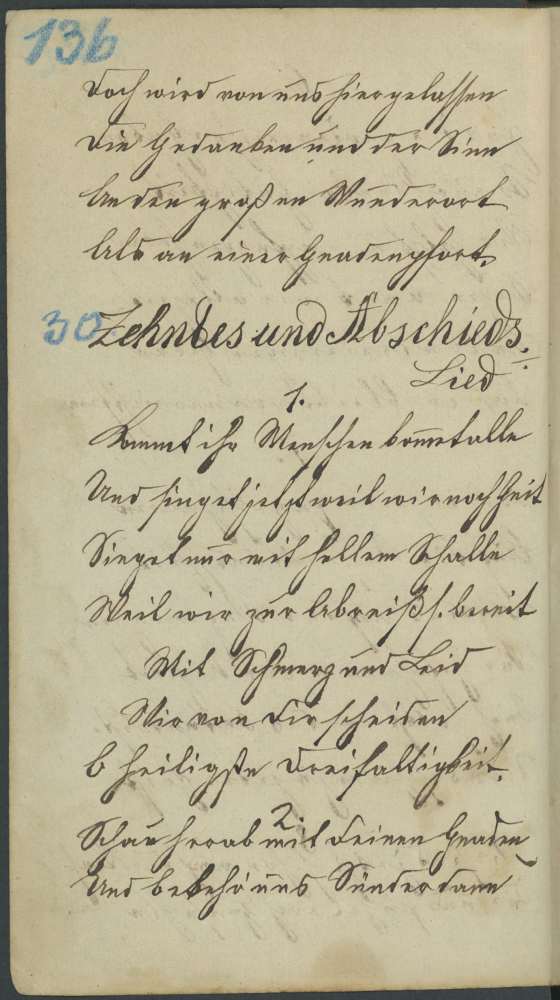 136
Doch wird von uns hier gelassen
Die Gedanken und der Sinn
An den großen Wunderort
Als an einer Gnadenpfort.
30. Zehntes und Abschieds=
Lied
1.
Kommt ihr Menschen kommt alle
Und singet jetzt weil wir noch Zeit
Singet nur mit hellem Schalle
Weil wir zur Abreiß s. bereit
Mit Schmerz und Leid
Wir von dir scheiden
O heiligste Dreifaltigkeit.
2.
Schau herab mit deinen Gnaden
Und bekehr uns Sünder dann